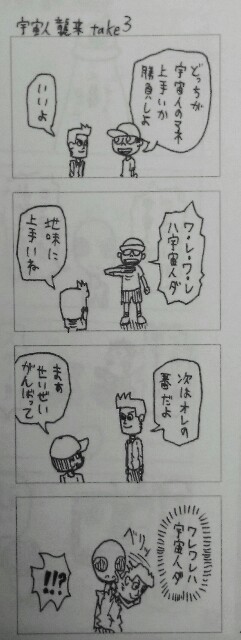 宇宙人襲来 take3
どっちが
宇宙人のマネ
上手いか
勝負しよ
いいよ
ワ・レ・ワ・レ
ハ宇宙人ダ
地味に
上手いね
次はオレの
番だよ
まあ
せいぜい
がんばって
ワレワレハ
宇宙人ダ
ベリッ
!!?